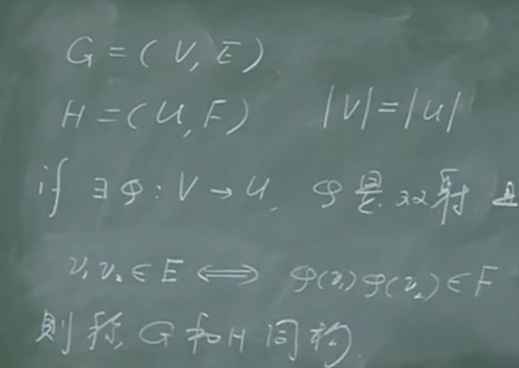 G=(V,E)
H=(U,F) |V|=|U|
if ∃φ:V→U, φ是双射.且
v₁v₂∈E⟺φ(v₁)φ(v₂)∈F
則称G和H同构.